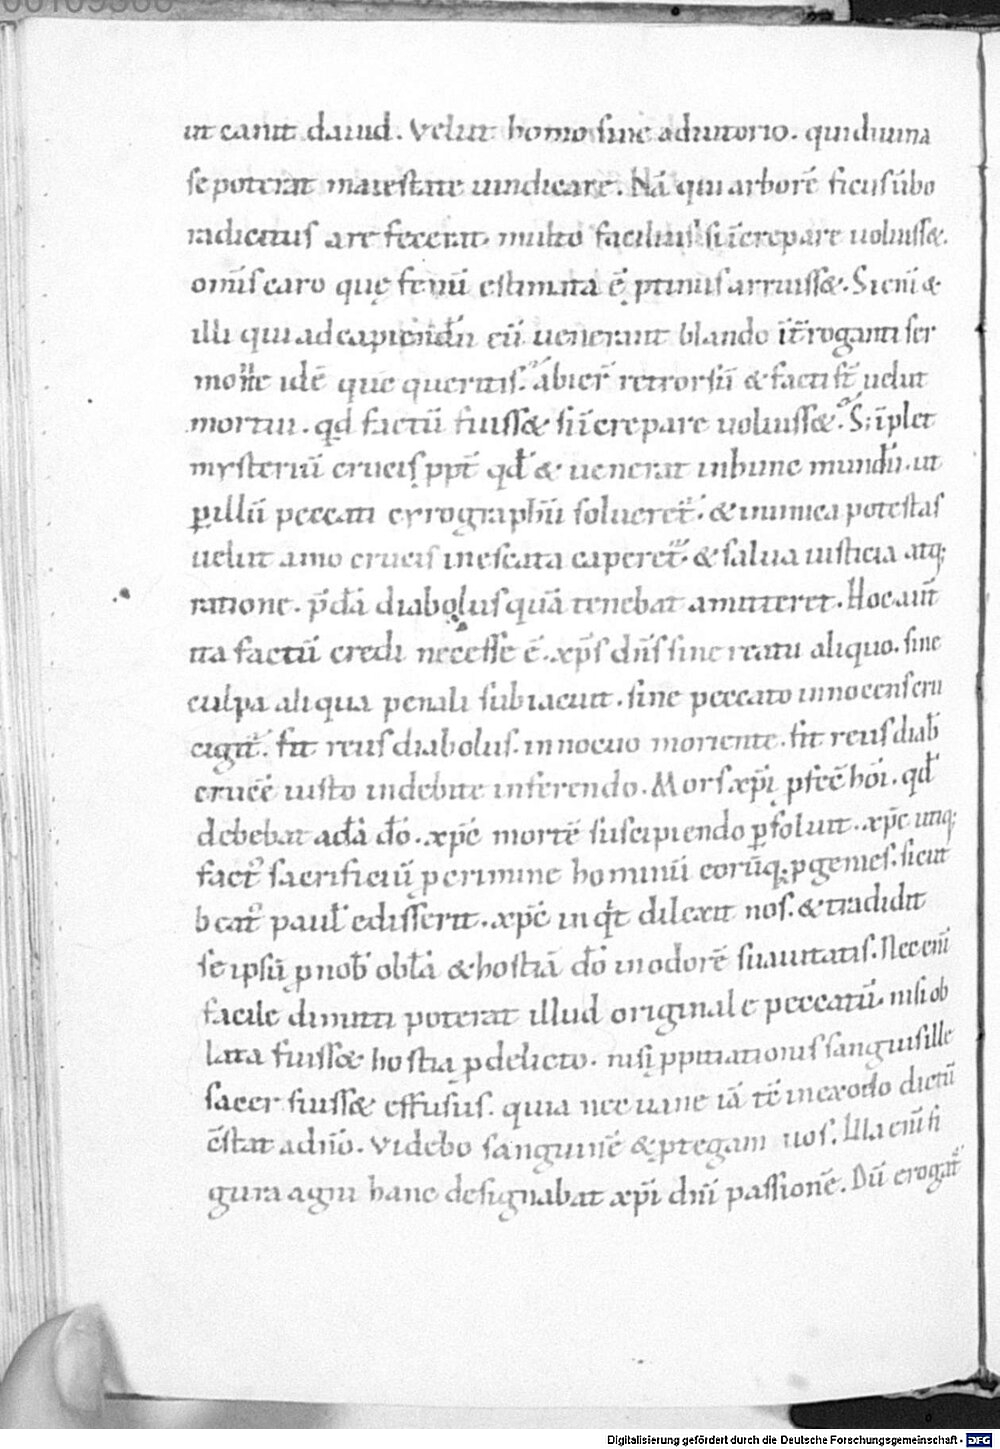 ut canit dauid. Velut homo sine adiutorio. qui diuina
se poterat maiestate uindicare. Nā qui arborē ficus ūbo
radicitus arefecerat. multo facilius si īcrepare uoluiss&.
om̄s caro quę fenū estimata ē, ptinus arruiss&. Sic eni &
illi qui ad capiendū eū uenerant blando īt̄roganti ser
mone idē que queritis. abier̄ retrorsū & facti st̄ uelut
mortui. qd factū fuiss& si īcrepare uoluiss&. S; īplet
mysteriū crucis ppt̄ qđ & uenerat in hunc mundū. ut
p illū peccati cyrographū solueret̄. & inimica potestas
uelut amo crucis inescata caperet̄. & salua iusticia atq;
ratione. p̄dā diabolus quā tenebat amitteret. Hoc aūt
ita factū credi necesse ē. xp̄s dn̄s sine reatu aliquo. sine
culpa aliqua penali subiacuit. sine peccato innocens cru
cigit̄. fit reus diabolus. innocuo moriente. fit reus diab̄
crucē iusto indebite inferendo. Mors xp̄i pfec̄ hōi. qđ
debebat adā dō. xp̄c mortē suscipiendo psoluit. xp̄c utiq;
fact᾽ sacrificiū p crimine hominū eorūq; pgenies. sicut
beat᾽ paul᾽ edisserit. xp̄c inqt̄ dilexit nos. & tradidit
se ipsū p nob̄ oblā & hostiā dō in odorē suauitatis. Nec eni
facile dimitti poterat illud originale peccatū. nisi ob
lata fuiss& hostia p delicto. nisi ppitiationis sanguis ille
sacer fuiss& effusus. quia nec uane iā tē in exodo dictū
ēstat a dn̄o. Videbo sanguinē & ptegam uos. Illa eni fi
gura agni hanc designabat xp̄i dn̄i passionē. Dū erogat̄